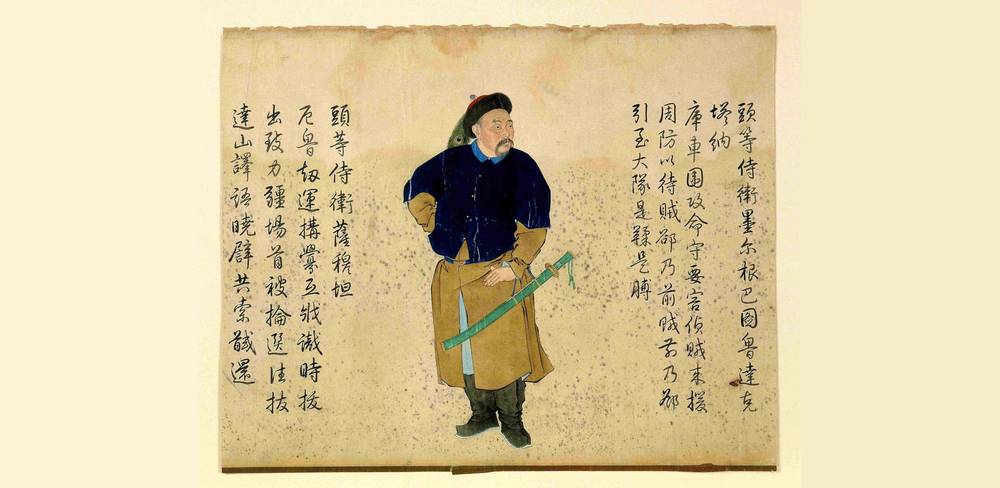 頭等侍衛墨尔根巴圖魯達克
塔納
庫車圍攻命守要害偵賊来援
周防以待賊郤乃前賊前乃郤
引至大隊是鞣是膊
頭等侍衛薩穆坦
厄魯刼運構釁互戕識時拔
出致力疆場首被掄選往拔
達山譯語曉譬共索馘還